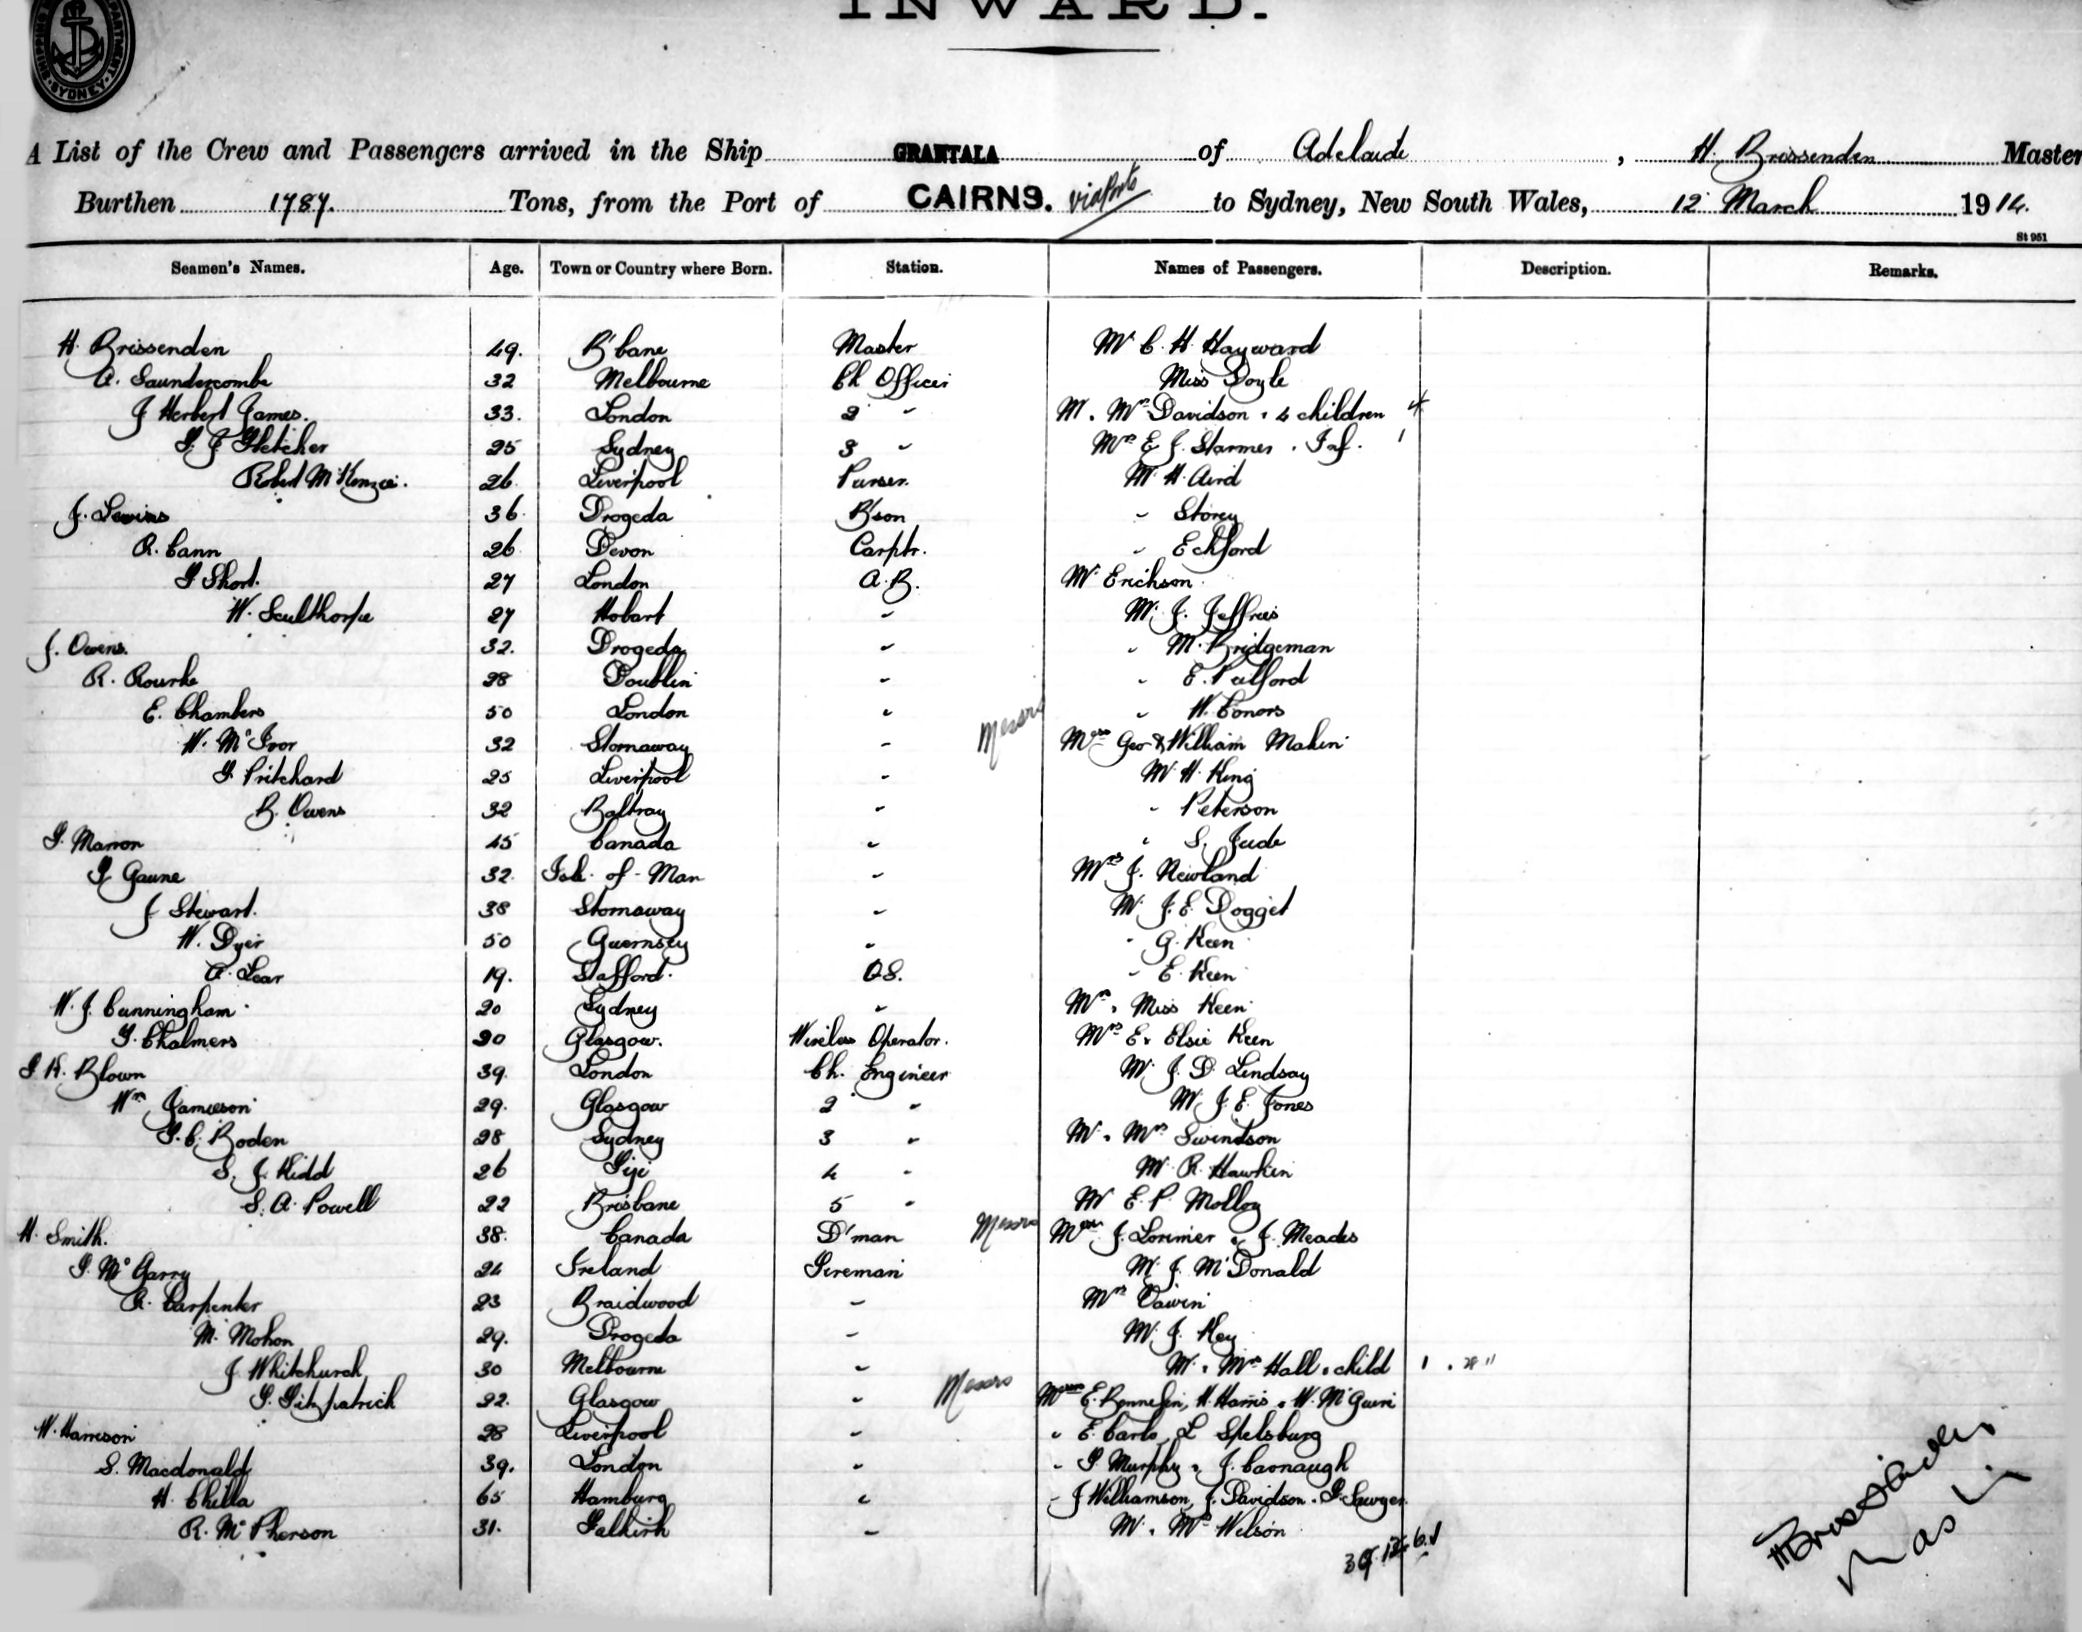 INWARD.
SHIPPING DEPARTMENT SYDNEY
A List of the Crew and Passengers arrived in the Ship GRANTALA of Adelaide, H. Brissenden Master
Burthen 1787. Tons, from the Port of CAIRNS. via Ports to Sydney, New South Wales, 12 March 1914.
St 951
Seamen's Names. Age. Town or Country where Born. Station. Names of Passengers. Description. Remarks.
H. Brissenden 49. B'bane Master Mr C. H. Hayward
A. Saundercombe 32 Melbourne Ch Officer Miss Doyle
J Herbert James. 33. London 2 " M. Mrs Davidson . 4 children 4
F. J Fletcher 25 Sydney 3 " Mrs E. J. Starmer . Inf. 1
Robert McKenzie. 26. Liverpool Purser. Mr H. Aird
J. Lewins 36. Drogeda B'son " Storey
R. Cann 26 Devon Carptr. " Eckford
F Short. 27 London A.B. Mr Erichson
W. Sculthorpe 27 Hobart " Mr. J. Jeffries
J. Owens. 32. Drogeda " " M. Bridgeman
R. Rourke 28 Doublin " " E. Pulford
E. Chambers 50 London " " W. Conors
W. McIvor 32 Stornaway " Messrs Messrs Geo & William Makin
G. Pritchard 25 Liverpool " Mr H. King
B. Owens 32 Baltray " " Peterson
P. Marron 45 Canada " " S. Jude
G Gaune 32. Isle of Man " Mrs J. Newland
J Stewart. 38 Stornaway " Mr. J. E. Dogget
W. Dyer 50 Guernsey " " G. Keen
A. Lear 19. Stafford. O.S. " E. Keen
W. J. Cunningham 20 Sydney " Mrs . Miss Keen
G. Chalmers 20 Glasgow. Wireless Operator. Mrs E. Elsie Keen
F. H. Blown 39. London Ch. Engineer Mr. J. D. Lindsay
Wm Jamieson 29. Glasgow 2 " Mr. J. E. Jones
F. C. Boden 28 Sydney 3 " Mr. Mrs Swindson
S. J. Kidd 26 Fiji 4 " Mr R. Hawkin
S. A. Powell 22 Brisbane 5 " Mr E. P. Molloy
H. Smith. 38. Canada D'man Messrs Messrs J. Lorimer & J. Meades
P. McGarry 24 Ireland Fireman Mr. J. McDonald
A. Carpenter 23 Braidwood " Mrs
M. Mohon 29. Drogeda " Mr. J. Key
J Whitchurch 30 Melbourne " Mr. Mrs Hall . child 1
P. Fitzpatrick 22. Glasgow " Messrs Messrs E. H. Harris . W. McGuire
W. Harrison 28 Liverpool " " E. L Spelsburg
S. Macdonald 39. London " " P. Murphy . J. Cavanaugh
H. Chilla 65 Hamburg " " J Williamson, J. Davidson . P. Sawyer
R. McPherson 31. Falkirk " Mr. Mrs Wilson
H Brissenden
Master